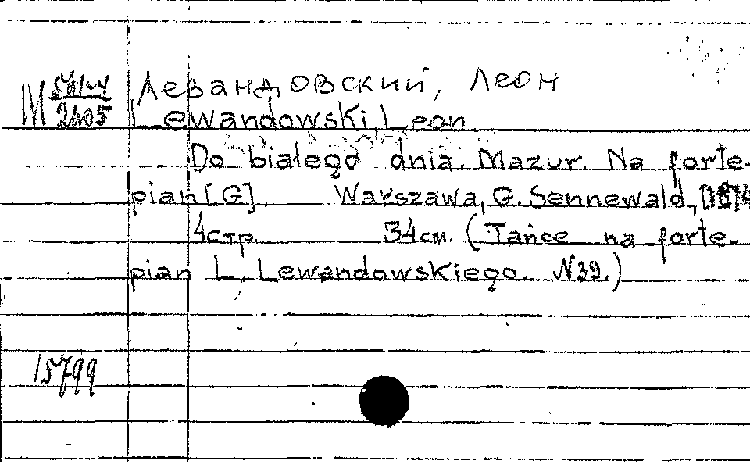 М 561-4 Левандовский, Леон
2405 Lewandowski, Leon
Do białego dnia. Mazur. Na forte-
pian [G]. Warszawa, G. Sennewald,
4 стр. 34 см. (Tańce na forte-
pian L. Lewandowskiego. N 39.)
15799